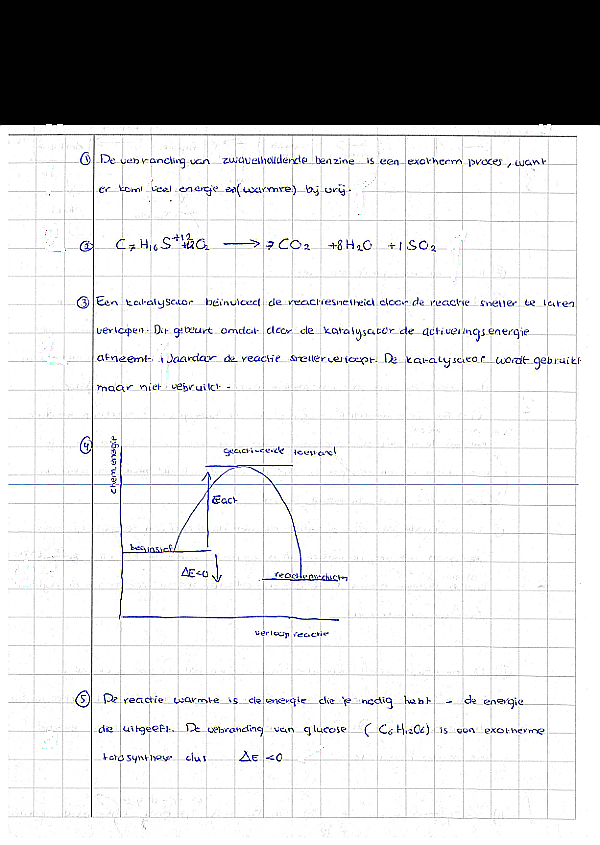 ① De verbranding van zwavelhoudende benzine is een exotherm proces, want
er komt veel energie en (warmte) bij vrij.
② C7H16S + 12O2 → 7CO2 + 8H2O + 1SO2
③ Een katalysator beinvloed de reactiesnelheid door de reactie sneller te laten
verlopen. Dit gebeurt omdat door de katalysator de activeringsenergie
afneemt, waardar de reactie sneller verloopt. De katalysator wordt gebruikt
maar niet verbruikt.
④
chem energie
geactiveerde toestand
Eact
beginstof
ΔE<0
reactieproducten
verloop reactie
⑤ De reactie warmte is de energie die je nodig hebt - de energie
die uitgeeft. De verbranding van glucose (C6H12O6) is een exotherme
dus ΔE <0